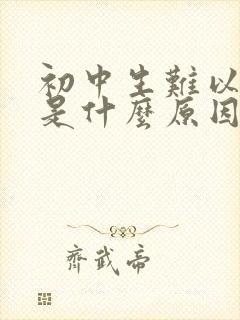 初中生難以
是什麼原因
齊武帝